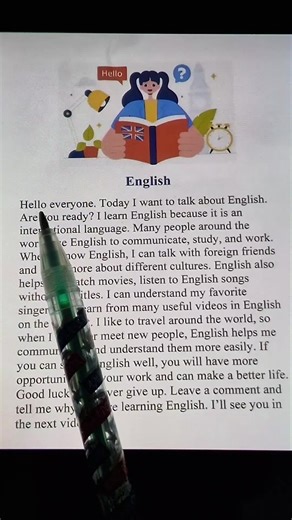 Hello
?
English
Hello everyone. Today I want to talk about English.
Are you ready? I learn English because it is an
international language. Many people around the
world use English to communicate, study, and work.
When know English, I can talk with foreign friends
and more about different cultures. English also
helps watch movies, listen to English songs
without subtitles. I can understand my favorite
learn from many useful videos in English
on the I like to travel around the world, so
when I meet new people, English helps me
communicate and understand them more easily. If
you can English well, you will have more
your work and can make a better life.
Good luck never give up. Leave a comment and
tell me why learning English. I'll see you in
the next video